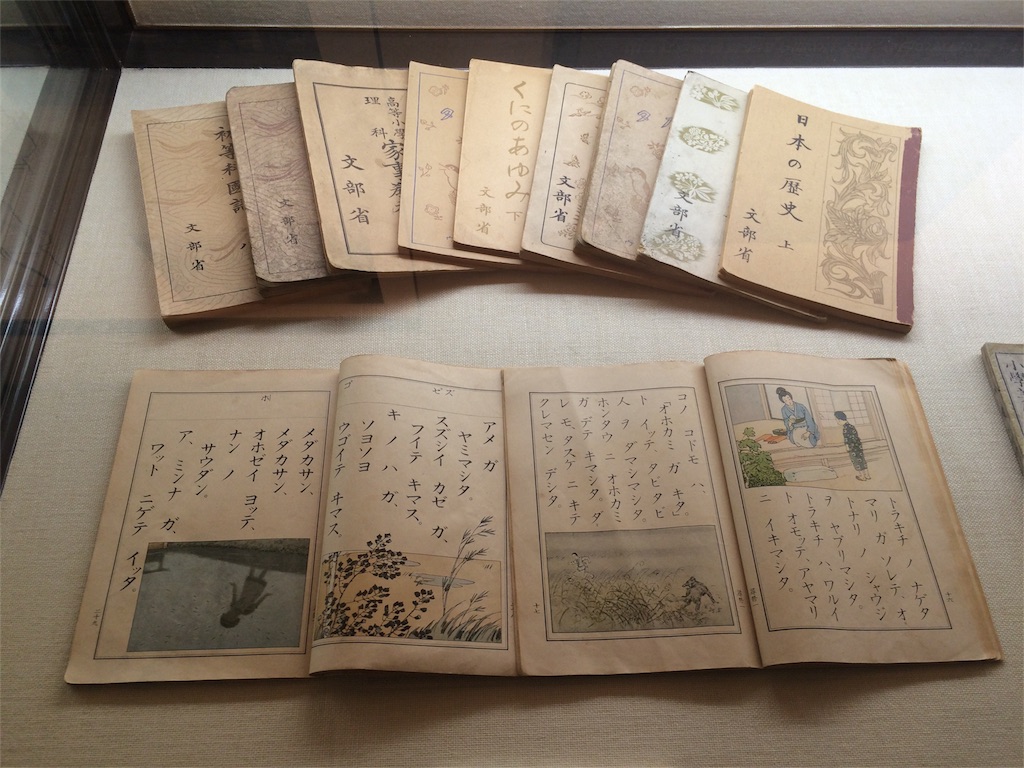 初等科國語
八
文部省
文部省
高等小學
理科家事
文部省
くにのあゆみ 下
文部省
文部省
文部省
日本の歴史 上
文部省
小學
アメ ガ
ヤミマシタ。
スズシイ カゼ ガ
フイテ キマス。
キ ノ ハ ガ、
ソヨソヨ
ウゴイテ ヰマス。
ズゼ
ゴ
ボ
メダカサン、
メダカサン、
オホゼイ ヨッテ、
ナン ノ
サウダン。
ア、ミンナ ガ、
ワット ニゲテ イッタ。
二十九
トラキチ ノ ナゲタ
マリ ガ ソレテ、オ
トナリ ノ シャウジ
ヲ ヤブリマシタ。
トラキチ ハ、ワルイ
ト オモッテ、アヤマリ
ニ イキマシタ。
コノ コドモ ハ、
「オホカミ ガ キタ。」
ト イッテ、タビタビ
人 ヲ ダマシマシタ。
ホンタウ ニ オホカミ
ガ デテ キマシタ ガ、ダ
レ モ タスケ ニ キテ
クレマセン デシタ。